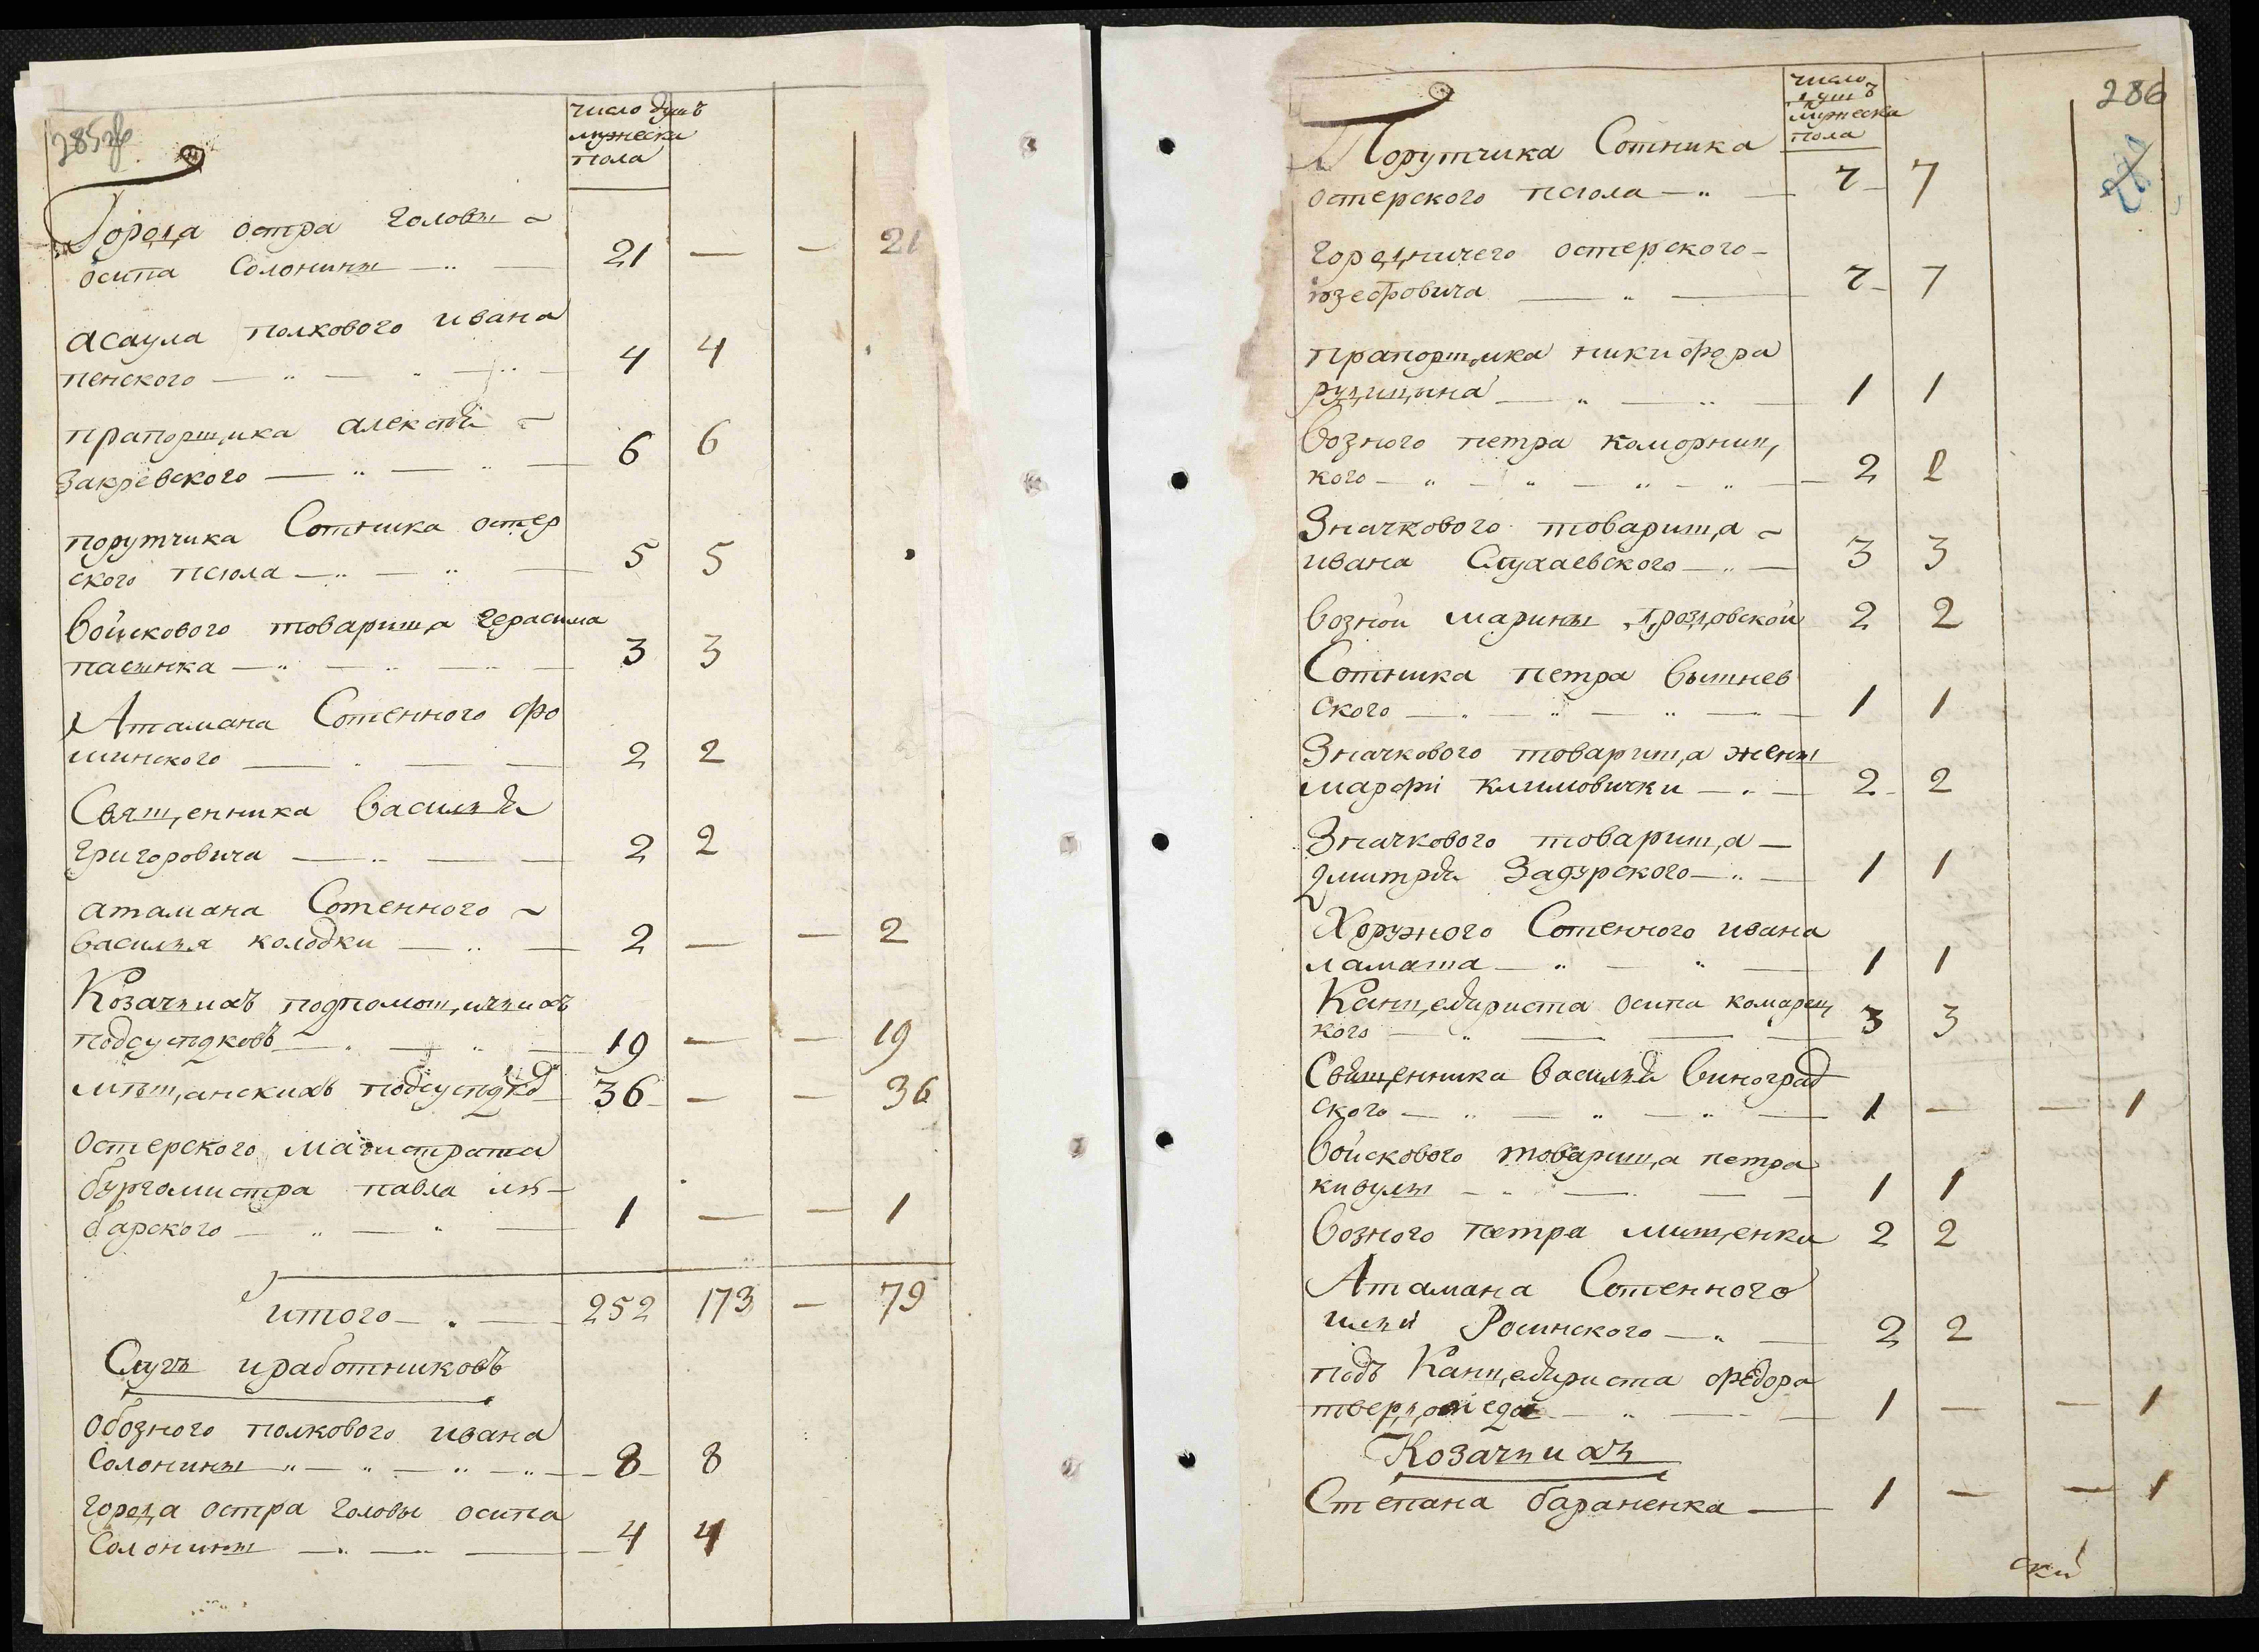 285зв
число душъ
мужеска
пола
Города остра головы
осипа Солонины 21 — — 21
асаула полкового ивана
пенского 4 4
прапорщика алексѣя
Закревского 6 6
порутчика Сотника остер
ского псіола 5 5
войскового товарища герасима
пасынка 3 3
Атамана Сотенного фо
минского 2 2
Священника василия
григоровича 2 2
атамана Сотенного
василия колодки 2 — — 2
Козачьихъ подпомощичьихъ
подсусѣдковъ 19 — — 19
мѣщанскихъ подсусѣдко 36 — — 36
остерского магистрата
бургомистра павла лю-
барского 1 — — 1
итого 252 173 — 79
Слугъ и работниковъ
обозного полкового ивана
Солонины 8 8
города остра головы осипа
Солонины 4 4
286
число
душъ
мужеска
пола
Порутчика Сотника
остерского псіола 7 7
городничего остерского
юзефовича 7 7
прапорщика никифора
рудицына 1 1
возного петра коморниц
кого 2 2
Значкового товарища
ивана Слухаевского 3 3
возной марины дроздовской 2 2
Сотника петра вышнев
ского 1 1
Значкового товарища жены
марфи климовички 2 2
Значкового товарища
дмитрия Задурского 1 1
Хорунжого Сотенного ивана
ламаша 1 1
Канцеляриста осипа комарец
кого 3 3
Священника василия виноград
ского 1 — — 1
войскового товарища петра
кивулы 1 1
возного петра мищенка 2 2
Атамана Сотенного
ильи Росинского 2 2
подъ Канцеляриста федора
1 — — 1
Козачьихъ
Степана бараненка 1 — — 1
ский